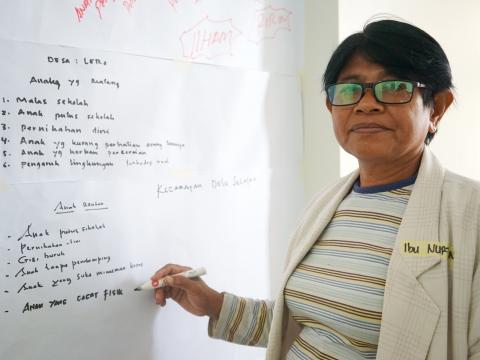 IIHAM
DESA : LERO
Anak2 yg Rentang
1. Malas sekolah
2. Anak putus sekolah
3. pernikahan dini
4. Anak yg kurang perhatian orang tuanya
5. Anak yg korban perceraian
6. pengaruh lingkungan terhadap anak
KECAMATAN
Anak Rentan
- Anak putus sekolah
- Pernikahan dini
- Gizi buruk
- Anak tanpa pendamping
- Anak yang suka minuman keras
- ANAK YANG CACAT FISIK
Ibu